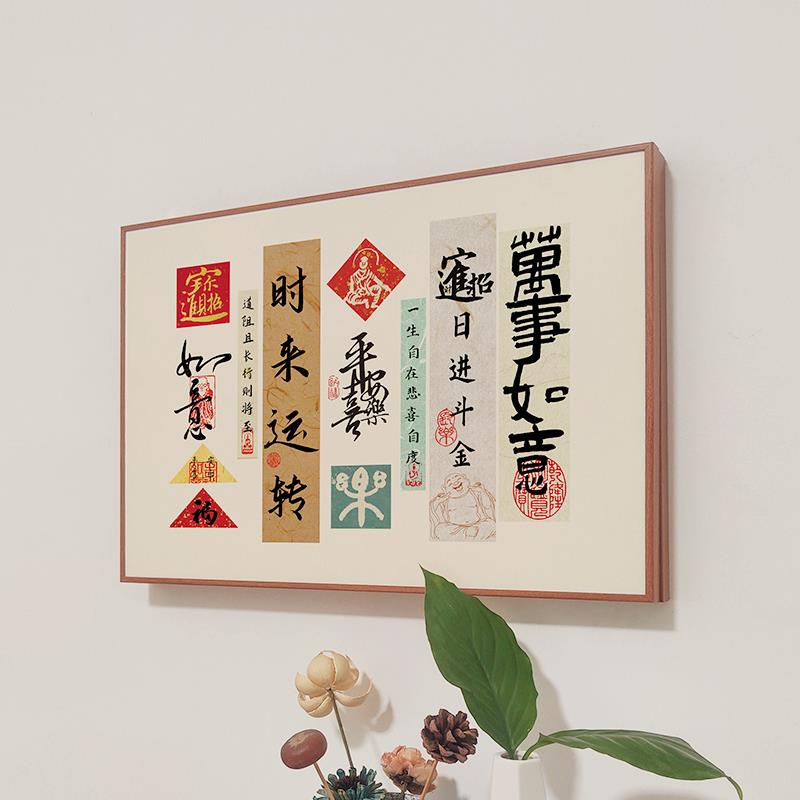 招财进宝
如意
福
道阻且长行则将至
时来运转
平安喜樂
樂
一生自在悲喜自度
招财進寶
日进斗金
萬事如意